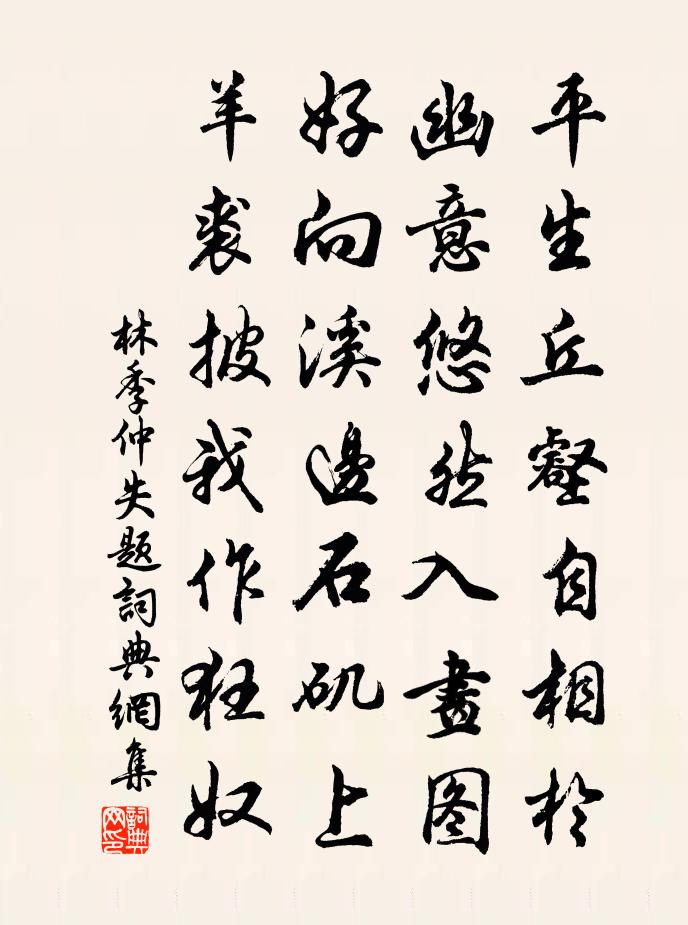 平生丘壑自相於
幽意悠然入畫图
好向溪邊石矶上
羊裘披我作狂奴
林季仲失题詞典網集
詞典網印